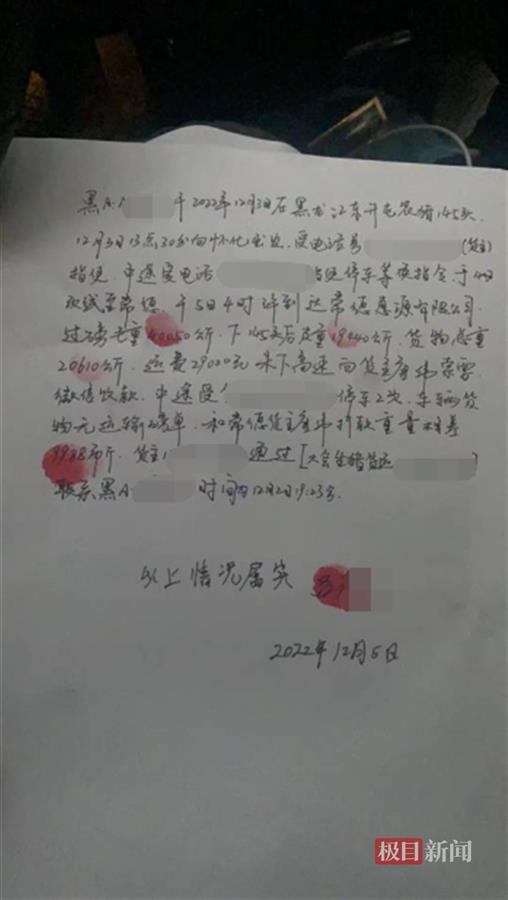 黑A· 于2022年12月3日在黑龙江东升屯装猪145头.
12月3日13点30分向怀化出发. 受电话号 (货主)
指使. 中途受电话 指使停车等候指令于4日
改线至常德. 于5日4时许到达常德惠源有限公司.
过磅毛重40050公斤. 下145头后皮重19440公斤. 货物总重
20610公斤. 运费29000元 未下高速向货主 索要
微信收款. 中途受 停车2次. 车辆货
物无运输磅单. 和常德货主 重量相差
9988市斤. 货主 通过[大会生猪货运 ]
联系黑A· 时间为12月2日19:23分.
以上情况属实
2022年12月5日
极目新闻